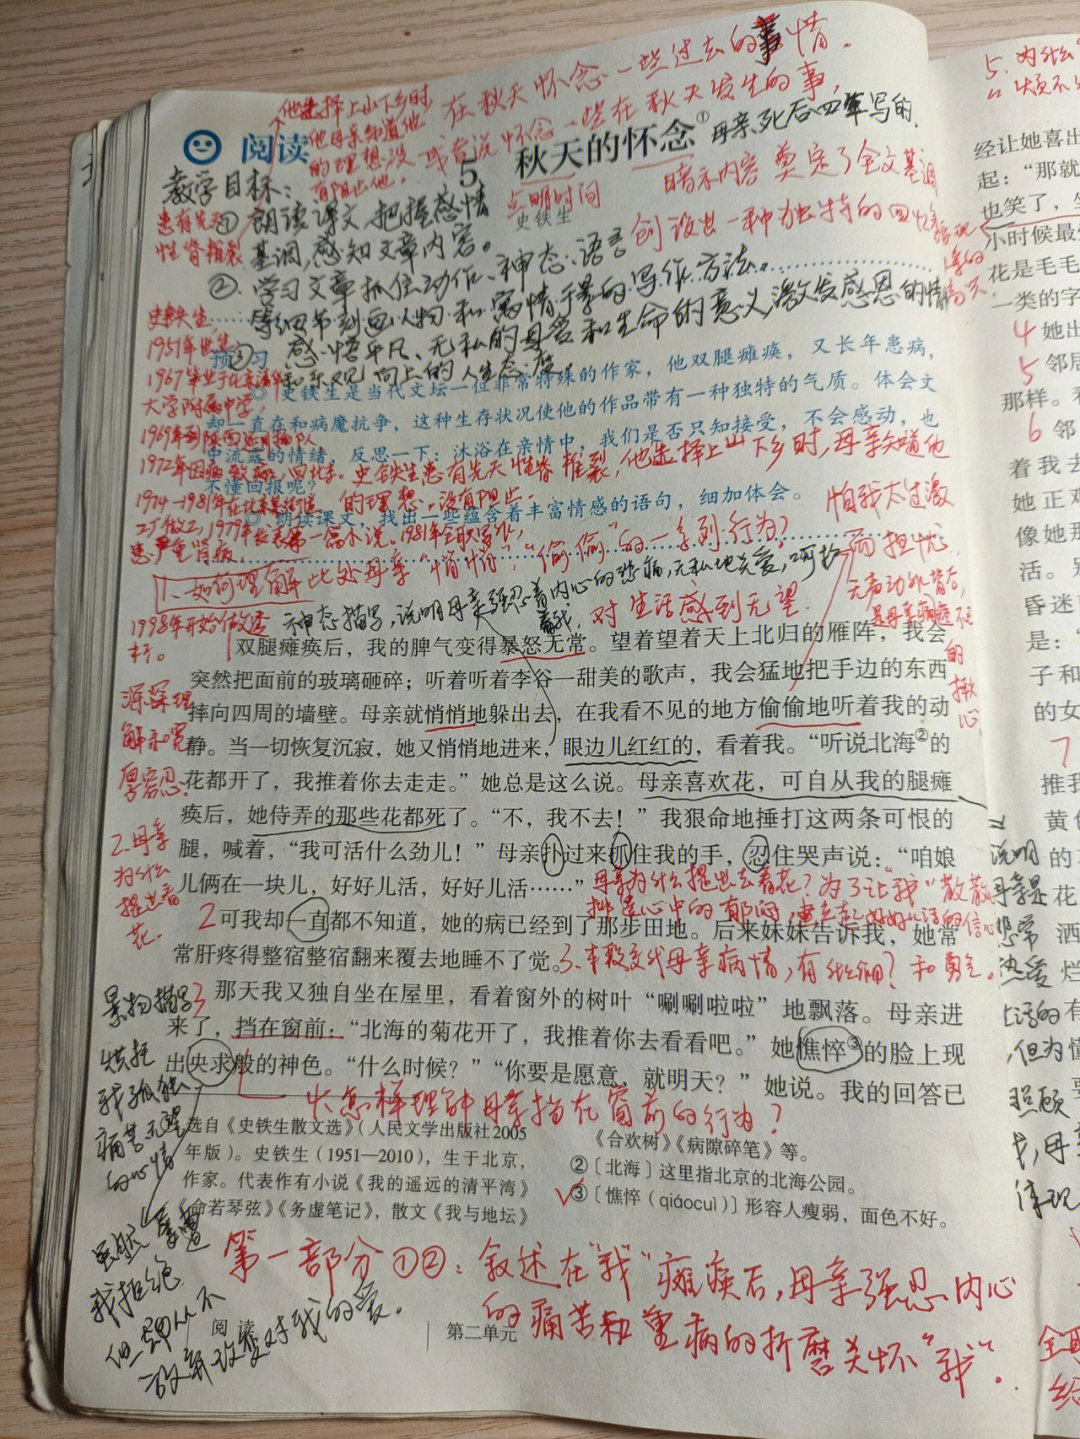 他选择上山下乡时
他母亲知道他
的理想,没
有阻止他,
在秋天怀念一些过去的事情。
或者说怀念一些在秋天发生的事,
母亲死后四年写的
阅读
5 秋天的怀念①
点明时间
史铁生
暗示内容 奠定了全文基调
创设出一种独特的回忆
患有先天
性脊椎裂
教学目标:
① 朗读课文,把握感情
基调,感知文章内容。
②学习文章抓住动作、神态、语言
等细节刻画人物和寓情于景的写作方法。
③感悟平凡、无私的母爱和生命的意义,激发感恩的情
和乐观向上的人生态度
预习
◎ 史铁生是当代文坛一位非常特殊的作家,他双腿瘫痪,又长年患病,
却一直在和病魔抗争,这种生存状况使他的作品带有一种独特的气质。体会文
中流露的情绪,反思一下:沐浴在亲情中,我们是否只知接受,不会感动,也
不懂回报呢?
◎ 朗读课文,找出一些蕴含着丰富情感的语句,细加体会。
史铁生,
1951年出生
1967毕业于北京清华
大学附属中学,
1969年到陕西延川插队
1972年因病致瘫,回北京。
1974—1981年在北京某街道
工厂做工,1979年发表第一篇小说。1981年
患严重肾病
1998年开始做透
析。
史铁生患有先天性脊椎裂,他选择上山下乡时,母亲知道他
的理想,没有阻止
1、如何理解此处母亲“悄悄”“偷偷”的一系列行为?
怕我太过激
而担忧
神态描写,说明母亲强忍着内心的悲痛,无私地关爱,呵护
着我.
对生活感到无望.
双腿瘫痪后,我的脾气变得暴怒无常。望着望着天上北归的雁阵,我会
突然把面前的玻璃砸碎;听着听着李谷一甜美的歌声,我会猛地把手边的东西
摔向四周的墙壁。母亲就悄悄地躲出去,在我看不见的地方偷偷地听着我的动
静。当一切恢复沉寂,她又悄悄地进来,眼边儿红红的,看着我。“听说北海②的
花都开了,我推着你去走走。”她总是这么说。母亲喜欢花,可自从我的腿瘫
痪后,她侍弄的那些花都死了。“不,我不去!”我狠命地捶打这两条可恨的
腿,喊着,“我可活什么劲儿!”母亲扑过来抓住我的手,忍住哭声说:“咱娘
儿俩在一块儿,好好儿活,好好儿活……”
深深理
解和宽
厚容忍.
2.母亲
为什么
提出看
花.
母亲为什么提出去看花?为了让“我”散散
排遣心中的郁闷,建立起好好儿活的信心
和勇气。
2 可我却一直都不知道,她的病已经到了那步田地。后来妹妹告诉我,她常
常肝疼得整宿整宿翻来覆去地睡不了觉。
3、本段交代母亲病情,有什么作用?
3 那天我又独自坐在屋里,看着窗外的树叶“唰唰啦啦”地飘落。母亲进
来了,挡在窗前:“北海的菊花开了,我推着你去看看吧。”她憔悴③的脸上现
出央求般的神色。“什么时候?”“你要是愿意,就明天?”她说。我的回答已
景物描写
烘托
我孤独
痛苦无望
的心情
怎样理解母亲挡在窗前的行为?
选自《史铁生散文选》(人民文学出版社2005
年版)。史铁生(1951—2010),生于北京,
作家。代表作有小说《我的遥远的清平湾》
《命若琴弦》《务虚笔记》,散文《我与地坛》
《合欢树》《病隙碎笔》等。
②〔北海〕这里指北京的北海公园。
③〔憔悴(qiáocuì)〕形容人瘦弱,面色不好。
虽然屡遭
我拒绝
但
放弃改变对我的爱。
第一部分①②:叙述在“我”瘫痪后,母亲强忍内心
的痛苦和重病的折磨关怀“我”.
阅读
第二单元
5.为什么
经让她喜出
起:“那就
也笑了,坐
小时候最
花是毛毛
一类的字
4 她出
5 邻居
那样。
6 邻
着我去
她正
像她那
活。
昏迷
是:“
子和
的女
7
推我
黄
的
花
洒
烂
的有
懂
说明
母亲是
非常
热爱
生活的
,但为
照顾
我,母
体现